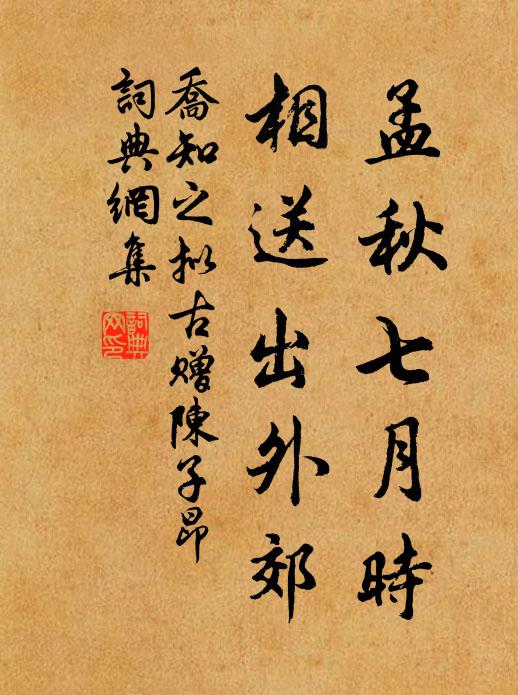 孟秋七月時
相送出外郊
喬知之拟古贈陳子昂
詞典網集
詞典
网印